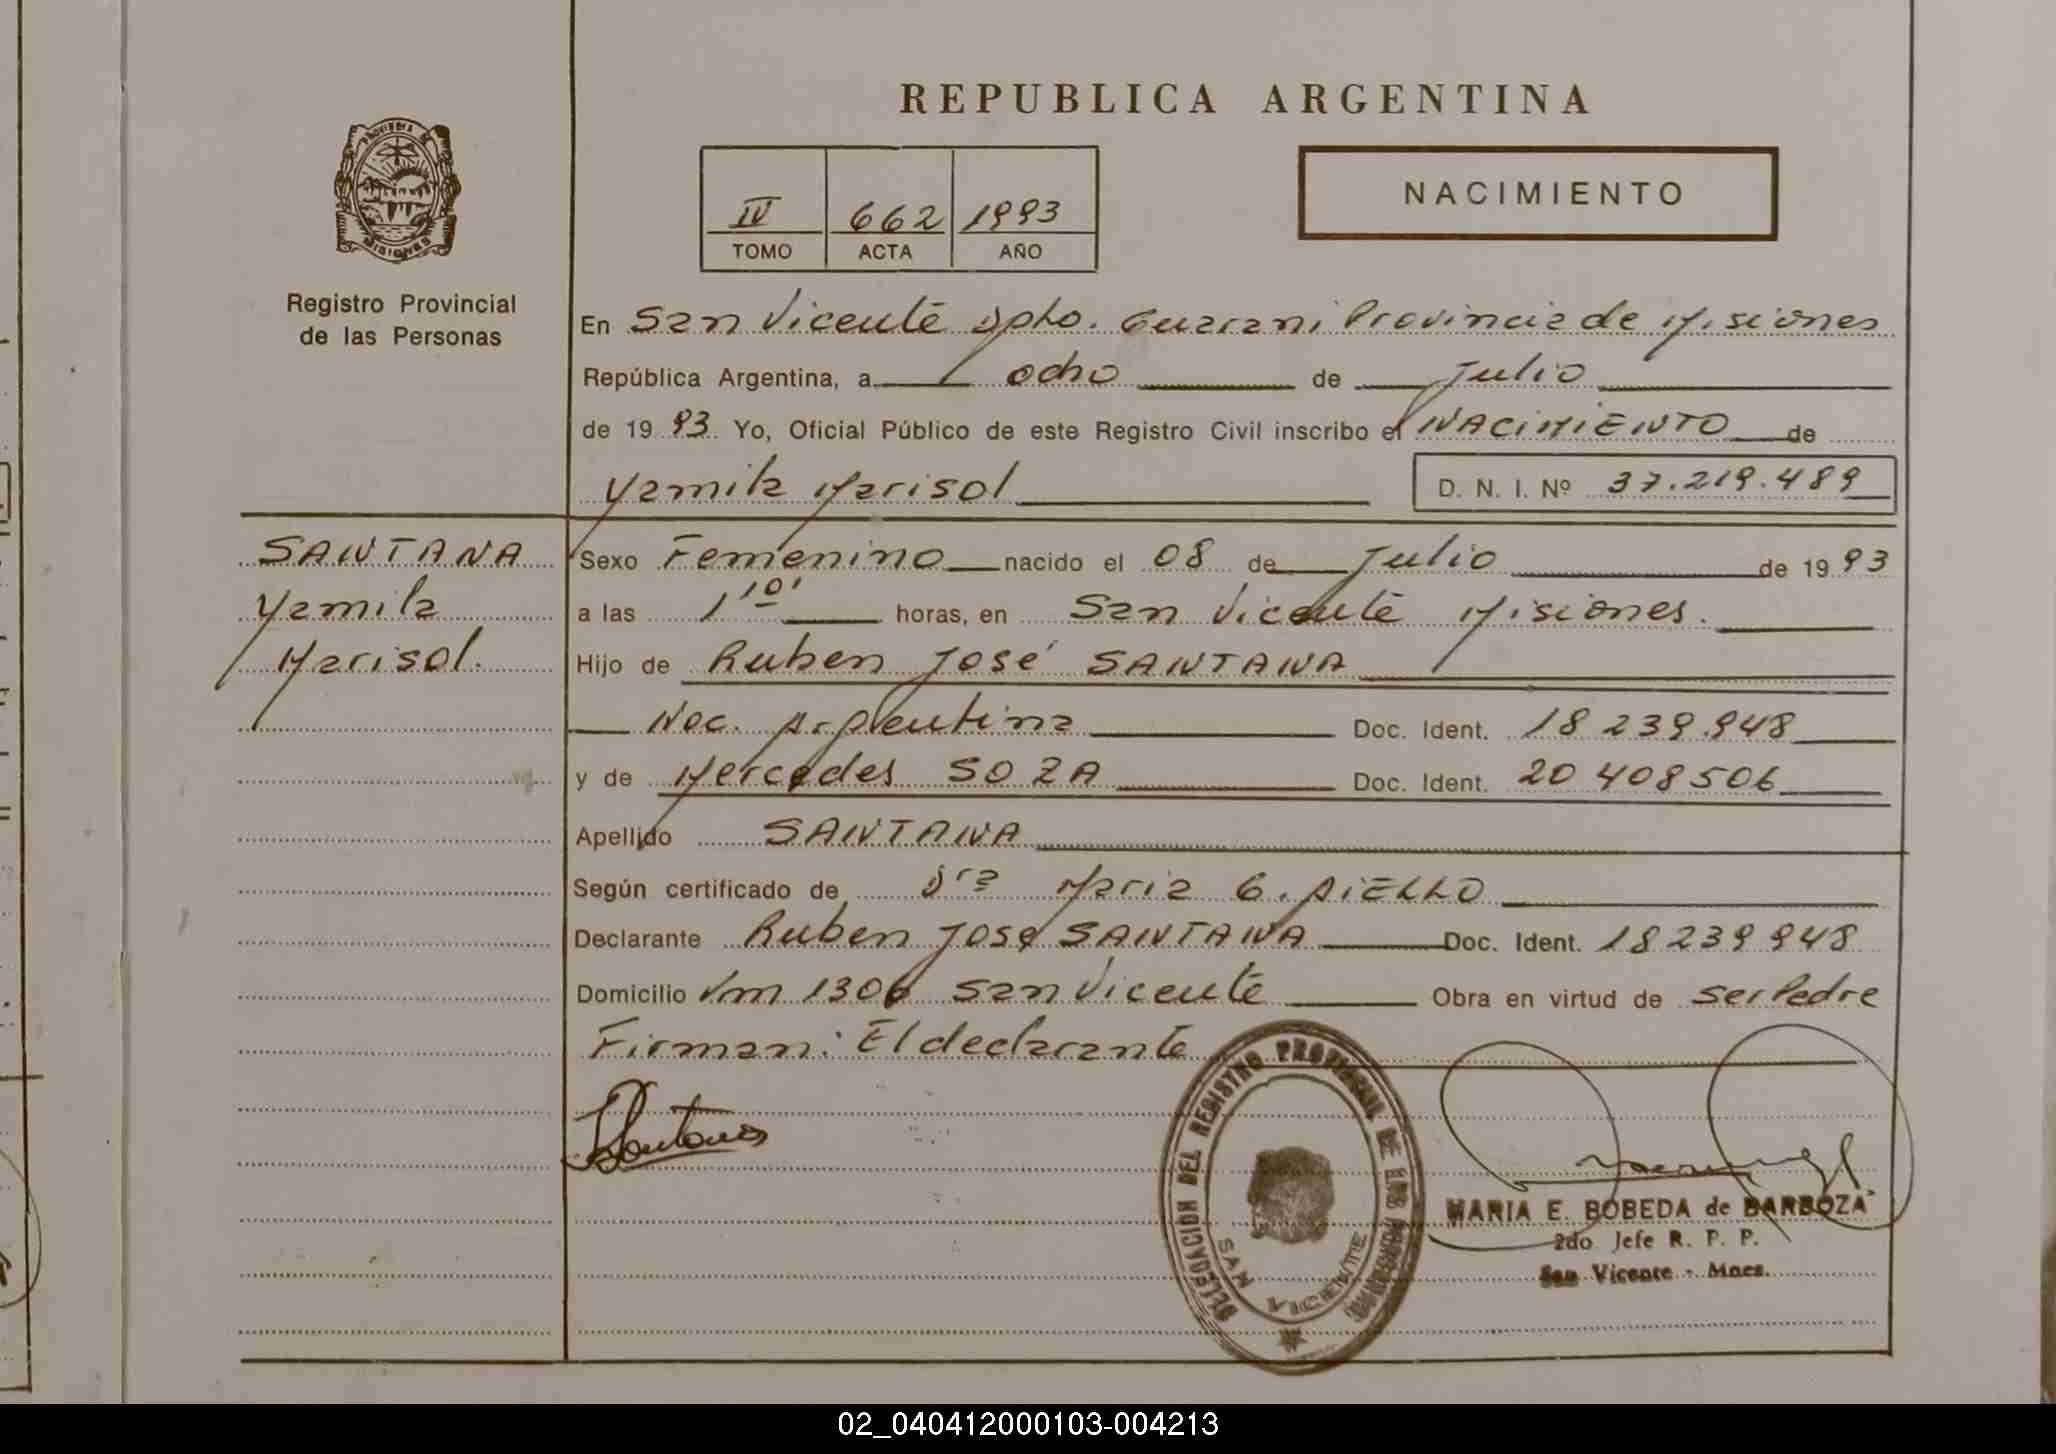 REPUBLICA ARGENTINA
PROVINCIA DE
MISIONES
Registro Provincial
de las Personas
IV 662 1993
TOMO ACTA AÑO
NACIMIENTO
En San Vicente Dpto. Guarani Provincia de Misiones
República Argentina, a ocho de Julio
de 1993. Yo, Oficial Público de este Registro Civil inscribo el NACIMIENTO de
Yamila Marisol D. N. I. Nº 37.219.489
SANTANA
Yamila
Marisol.
Sexo Femenino nacido el 08 de Julio de 1993
a las 1 10' horas, en San Vicente Misiones.
Hijo de Ruben José SANTANA
Nac. Argentina Doc. Ident. 18 239.948
y de Mercedes SOZA Doc. Ident. 20 408506
Apellido SANTANA
Según certificado de Dra Maria G. AiELLO
Declarante Ruben José SANTANA Doc. Ident. 18239948
Domicilio Km 1306 San Vicente Obra en virtud de ser Padre
Firman: El declarante
RSantana
DELEGACION DEL REGISTRO PROVINCIAL DE LAS PERSONAS
SAN VICENTE
MARIA E. BOBEDA de BARBOZA
2do Jefe R. P. P.
San Vicente - Mnes.
02_040412000103-004213